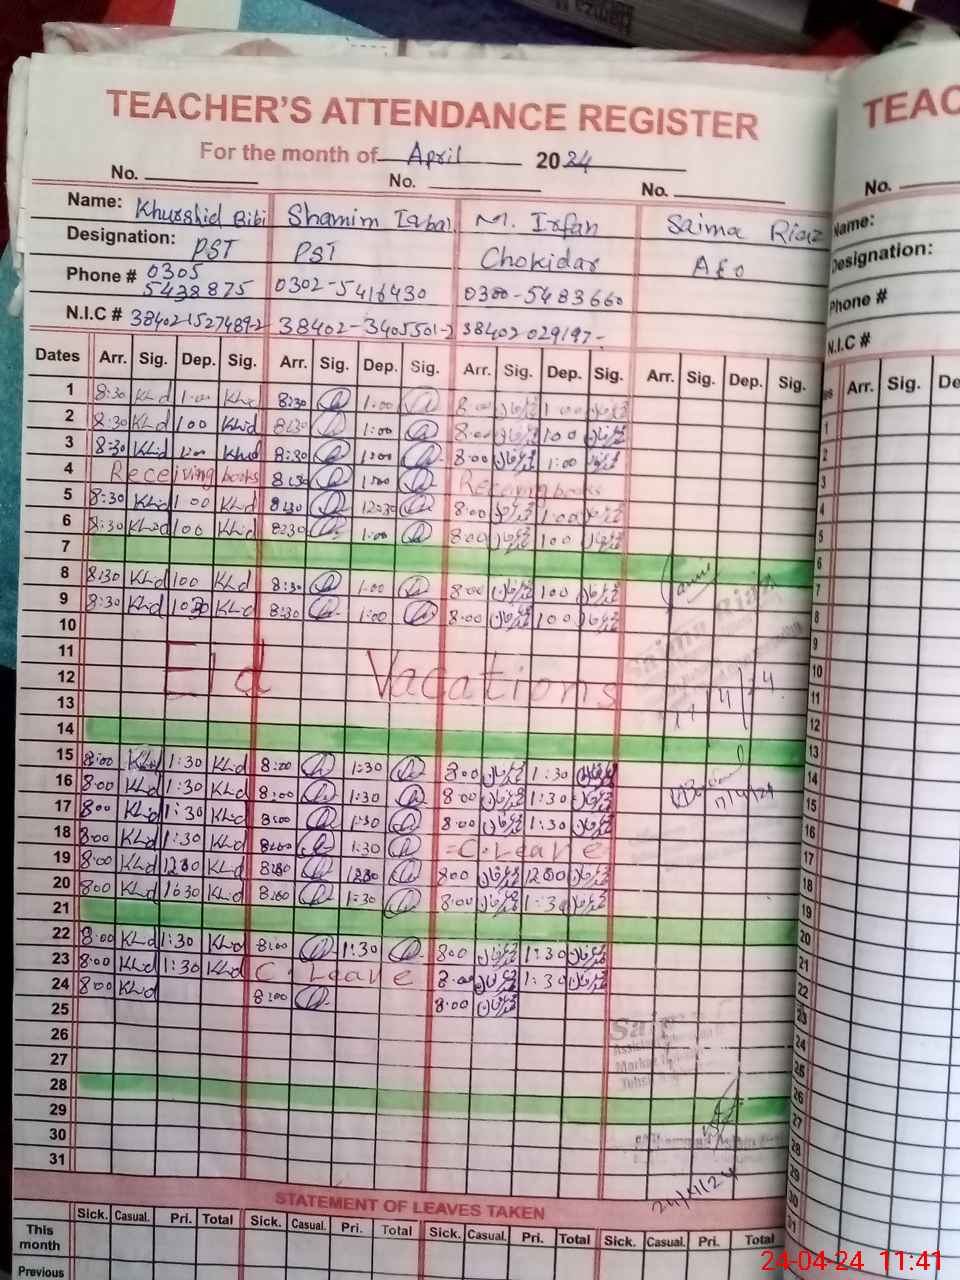 TEACHER'S ATTENDANCE REGISTER
For the month of April 2024
No. No. No.
Name: Khurshid Bibi Shamim Iqbal M. Irfan Saima Riaz
Designation: PST PST Chokidar AEO
Phone # 0305 5438875 0302-5416430 0300-5483660
N.I.C # 38402-1527489-2 38402-3405501-2 38402-029197-
Dates Arr. Sig. Dep. Sig. Arr. Sig. Dep. Sig. Arr. Sig. Dep. Sig. Arr. Sig. Dep. Sig.
1 8:30 Kh.d 1:00 Kh.d 8:30 1:00 8:00 عرفان 1:00 عرفان
2 8:30 Kh.d 1:00 Kh.d 8:30 1:00 8:00 عرفان 1:00 عرفان
3 8:30 Kh.d 1:00 Kh.d 8:30 1:00 8:00 عرفان 1:00 عرفان
4 Receiving books 8:30 1:00 Receiving books
5 8:30 Kh.d 1:00 Kh.d 8:30 12:30 8:00 عرفان 1:00 عرفان
6 8:30 Kh.d 1:00 Kh.d 8:30 1:00 8:00 عرفان 1:00 عرفان
7
8 8:30 Kh.d 1:00 Kh.d 8:30 1:00 8:00 عرفان 1:00 عرفان
9 8:30 Kh.d Kh.d 8:30 1:00 8:00 عرفان 1:00 عرفان
10
11
12 Eid Vacations
13
14
15 8:00 Kh.d 1:30 Kh.d 8:00 1:30 8:00 عرفان 1:30 عرفان
16 8:00 Kh.d 1:30 Kh.d 8:00 1:30 8:00 عرفان 1:30 عرفان
17 8:00 Kh.d 1:30 Kh.d 8:00 1:30 8:00 عرفان 1:30 عرفان
18 8:00 Kh.d 1:30 Kh.d 8:00 1:30 C. Leave
19 8:00 Kh.d Kh.d 8:00 8:00 عرفان 12:00 عرفان
20 8:00 Kh.d Kh.d 8:00 1:30 8:00 عرفان 1:30 عرفان
21
22 8:00 Kh.d 1:30 Kh.d 8:00 1:30 8:00 عرفان 1:30 عرفان
23 8:00 Kh.d 1:30 Kh.d C. Leave 8:00 عرفان 1:30 عرفان
24 8:00 Kh.d 8:00 8:00 عرفان
25
26
27
28
29
30
31
Saima Riaz
17/4/24
17/4/24
24/4/24
STATEMENT OF LEAVES TAKEN
Sick. Casual. Pri. Total Sick. Casual. Pri. Total Sick. Casual. Pri. Total Sick. Casual. Pri. Total
This month
Previous
TEAC
No.
Name:
Designation:
Phone #
N.I.C #
Arr. Sig. De
24-04-24 11:41